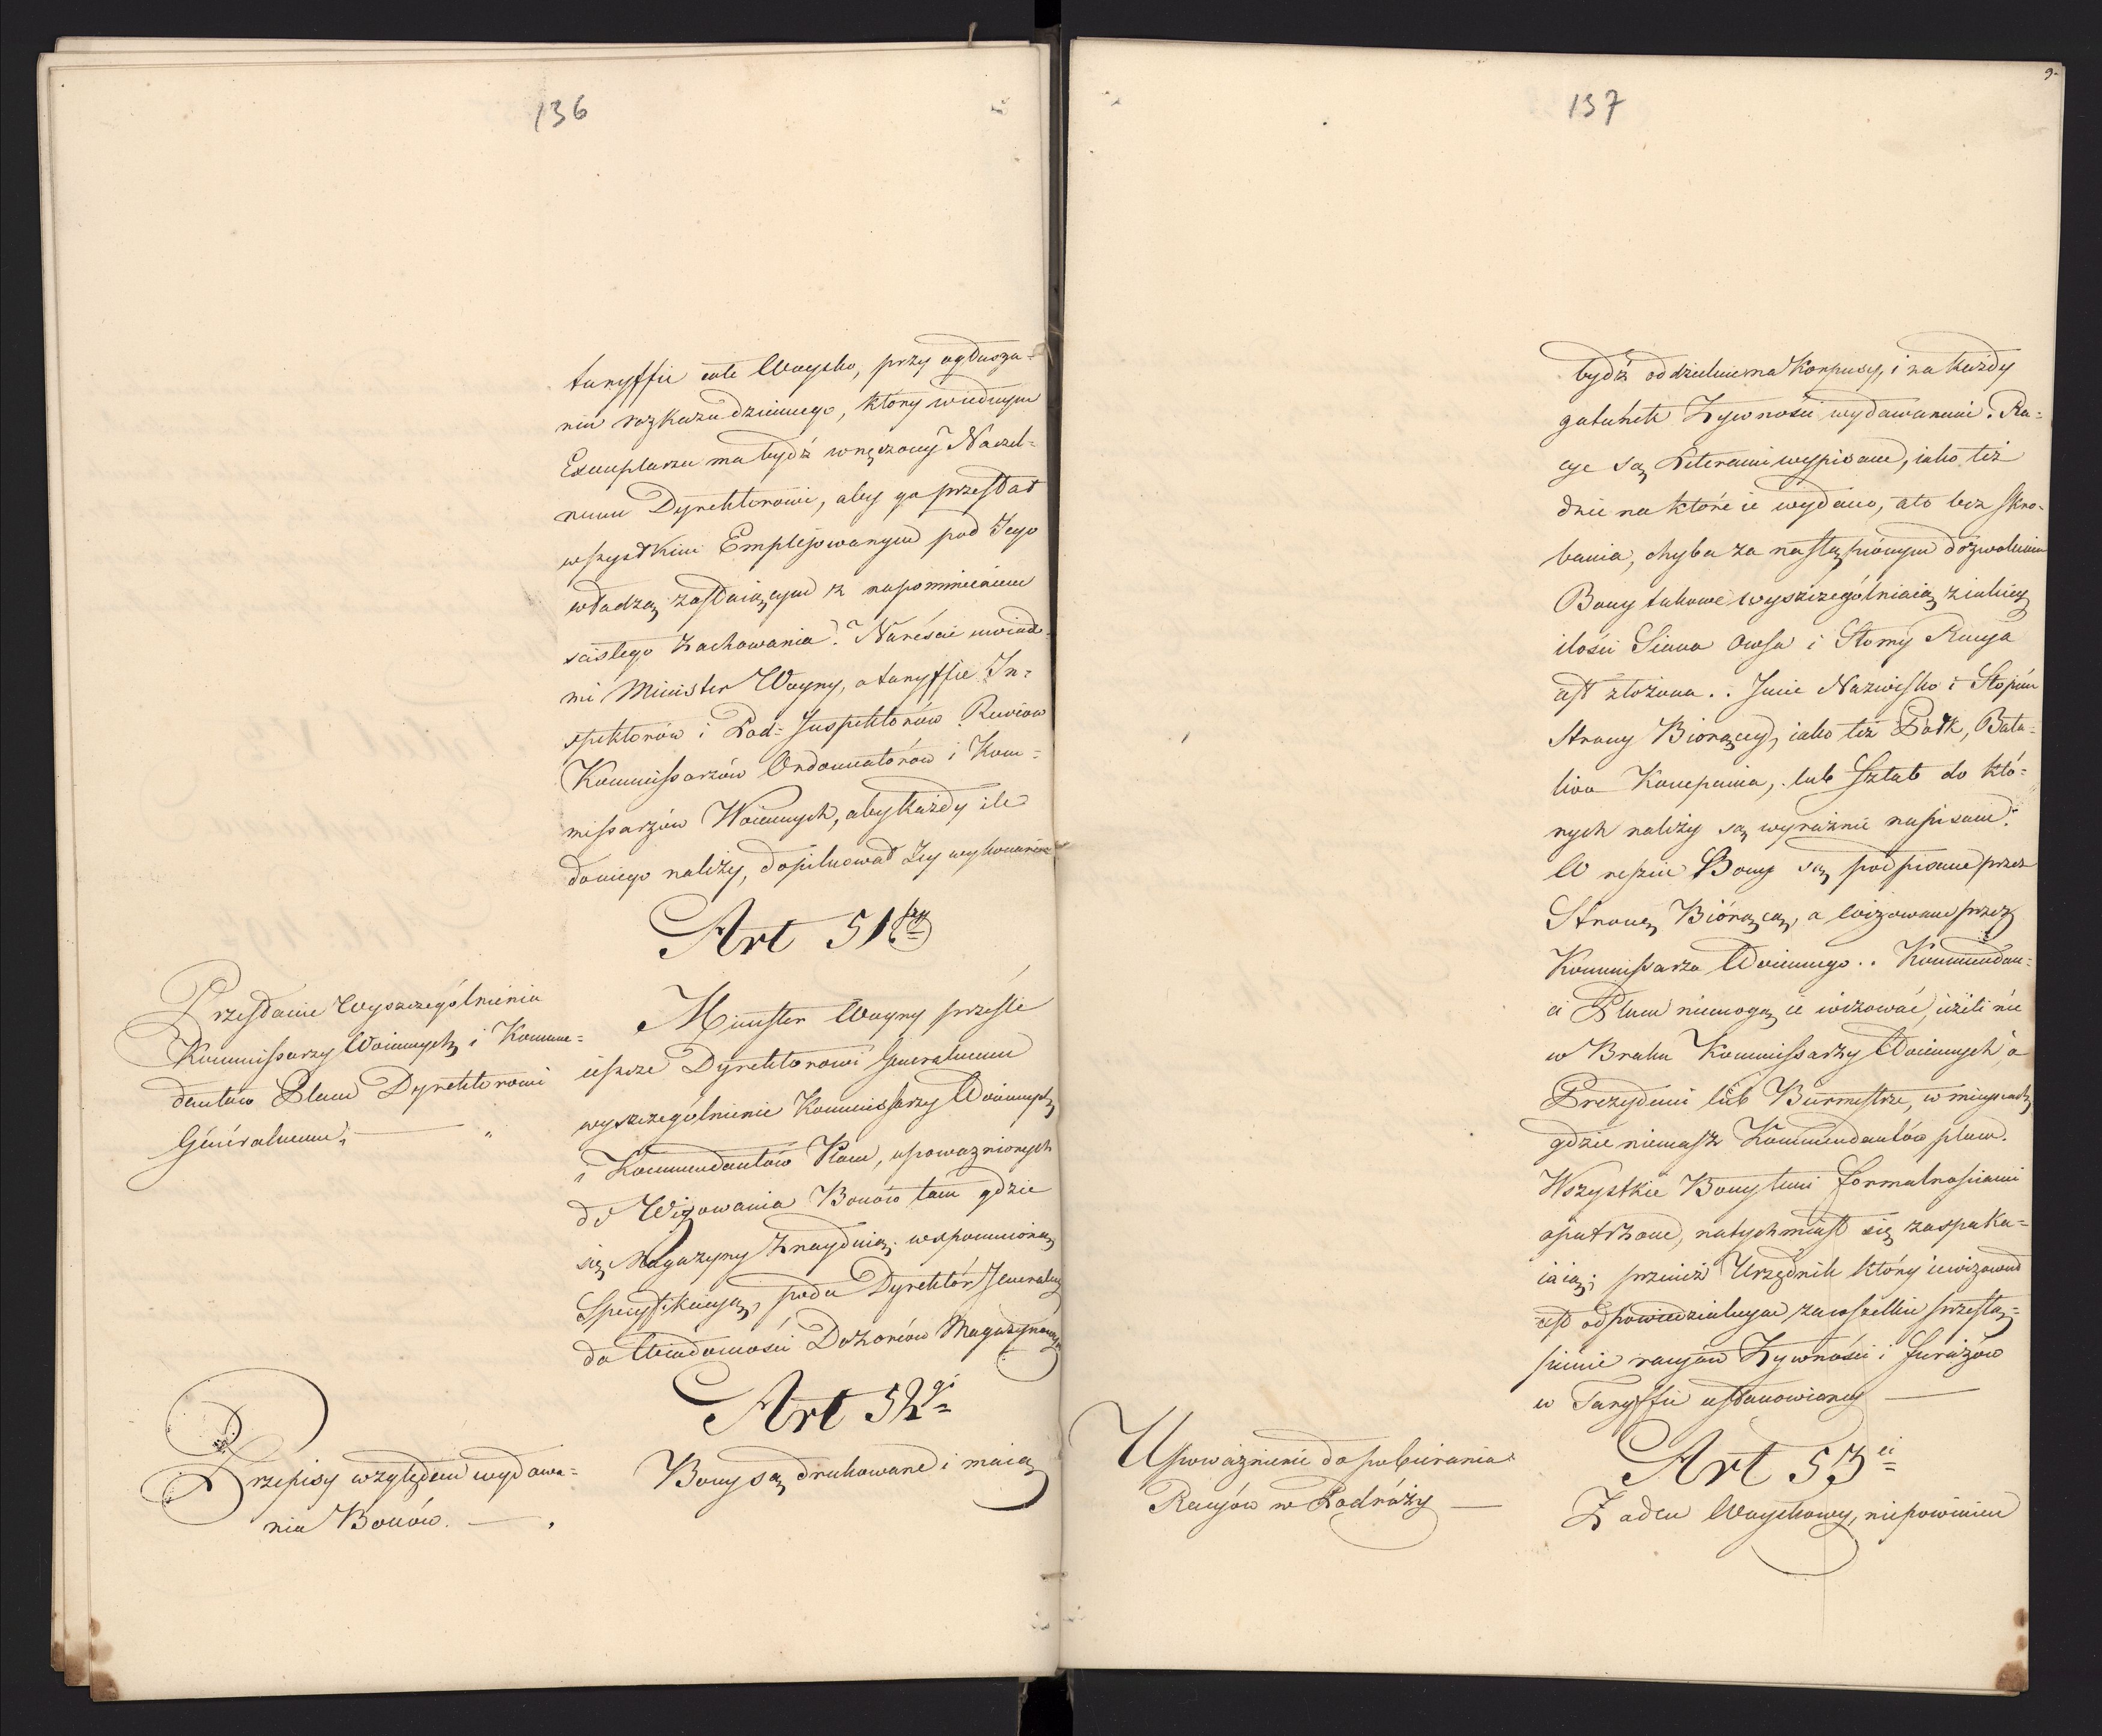 136
taryffie całe Woysko, przy ogłusza=
niu rozkazu dziennego, który wiednym
Exemplarzu ma bydź wręczony Naczel=
nemu Dyrektorowi, aby go przesłał
wszystkim Emplejowanym pod Jego
władzą zostaiącym z napomnieniem
scisłego zachowania. Nareście uwiad=
mi Minister Woyny, o taryffie In=
spektorów i Pod=Inspektorów Rewiow
Kommissarzów Ordonnatorów i Kom=
missarzów Woiennych, aby każdy ile
doniego należy, dopilnował Jey wykonania
Art 51szy
Przesłanie Wyszczególnienia
Kommissarzy Woiennych i Komme=
dantów Placu Dyrektorowi
Généralnemu. —— "
Minister Woyny prześle
ieszcze Dyrektorowi Generalnemu
wyszczególnienie Kommissarzy Woiennych
i Kommendantów Placu, upoważnionych
do Wizowania Bonów tam gdzie
się Magazyny znayduią, wspomnioną
Specyfikacyą, poda Dyrektor Jeneralny
do Wiadomości Dozorców Magazynowych
Art 52gi
Przepisy względem wydawa=
nia Bonów. ——.
Bony są drukowane i maią
9.
137
bydź oddzielnie na Korpusy, i na każdy
gatunek Żywności wydawanemi. Ra=
cye są Literami wypisane, iako też
dnie na które ie wydano, a to bez skro=
bania, chyba za nastąpionym dozwoleniem
Bony takowe wyszczególniaią z iakiey
ilości Siana Owsa i Słomy Racya
iest złożona.. Imie Nazwisko i Stopień
Strony Biorącey, iako też Pułk, Bata=
lion Kompania, lub Sztab do któ=
rych należy są wyraźnie napisane.
W reszcie Bony są podpisane przez
Stronę Biorącą, a wizowane przez
Kommissarza Woiennego.. Kommendan=
ci Placu niemogą ie wizować, ieżeli nie
w Braku Kommissarzy Woiennych, a
Prezydenci lub Burmistrze, w mieyscach
gdzie niemasz Kommendantów placu.
Wszystkie Bony temi formalnościami
opatrzone, natychmiast się zaspaka=
iaią; przecież Urzędnik który ie wizował
iest odpowiedzialnym za wszelkie przestą=
pienie racyów Żywności i furażów
w Taryffie ustanowioney ——
Art 53ci
Upoważnienie do pobierania
Racyów w Podróży ——
Żaden Woyskowy, niepowinien